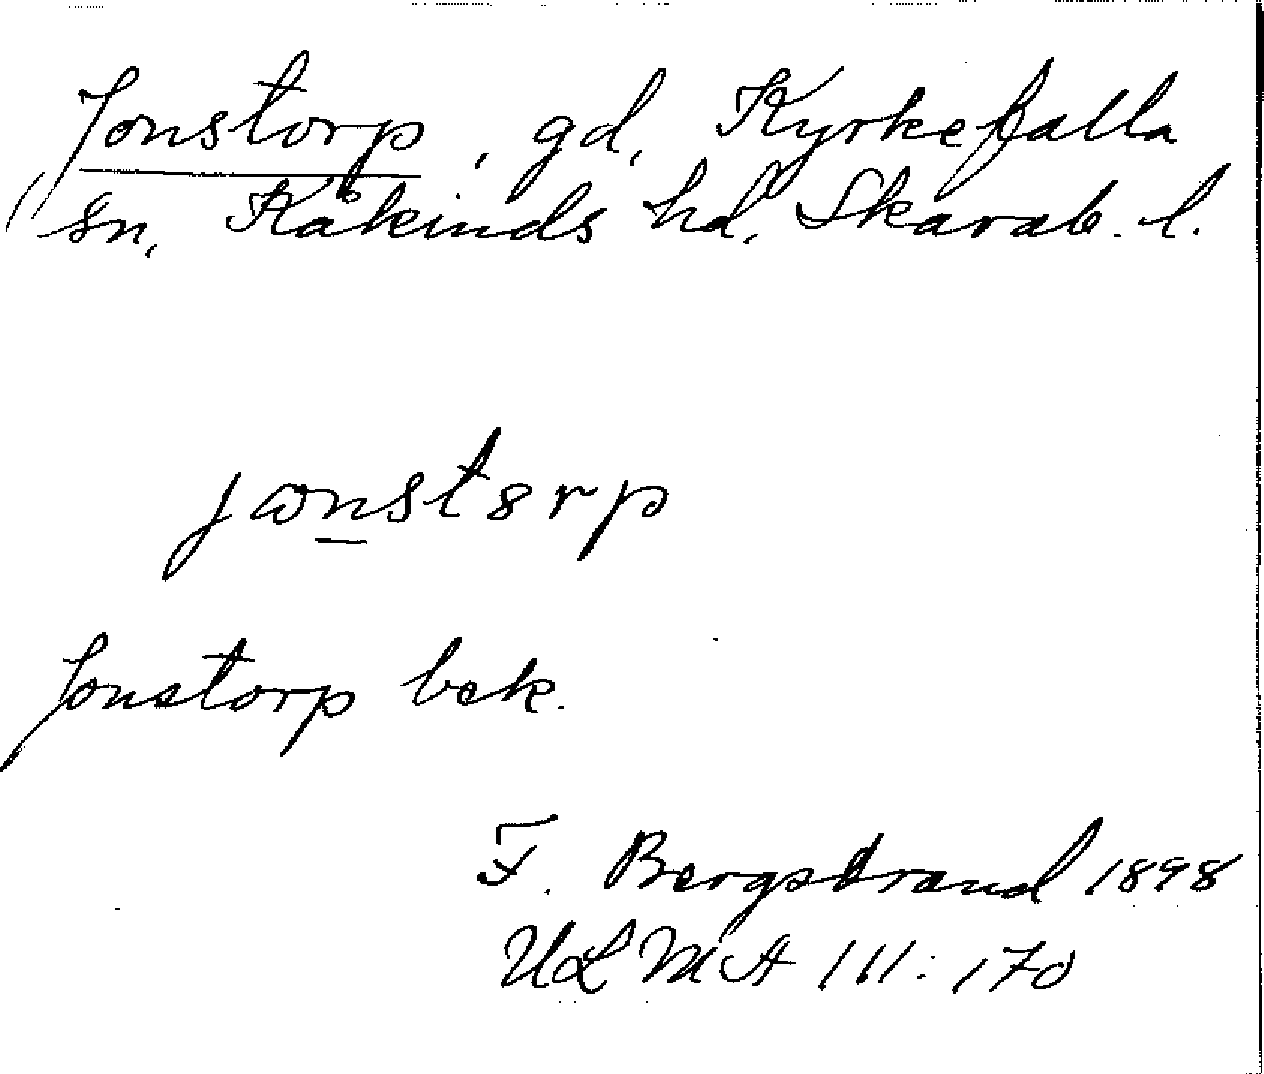 Jonstorp, gd, Kyrkefalla
sn, Kåkinds hd, Skarab. l.
Jonstorp bek.
F. Bergstrand 1898
ULMA 111:170